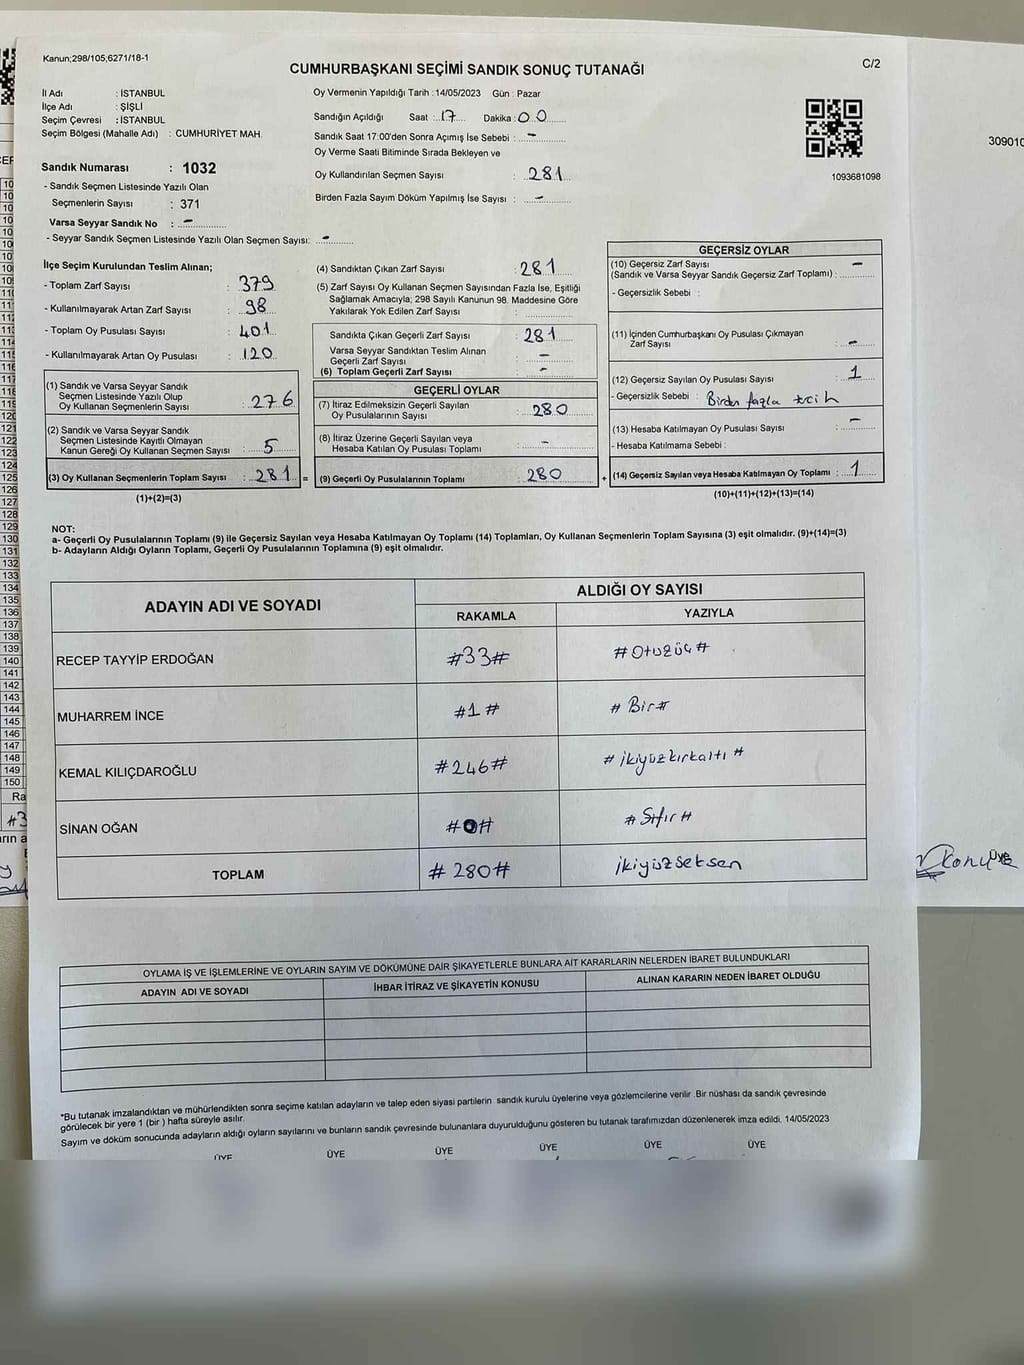 Kanun;298/105;6271/18-1
C/2
CUMHURBAŞKANI SEÇİMİ SANDIK SONUÇ TUTANAĞI
İl Adı : İSTANBUL
İlçe Adı : ŞİŞLİ
Seçim Çevresi : İSTANBUL
Seçim Bölgesi (Mahalle Adı) : CUMHURİYET MAH.
Sandık Numarası : 1032
- Sandık Seçmen Listesinde Yazılı Olan
Seçmenlerin Sayısı : 371
Varsa Seyyar Sandık No : -
- Seyyar Sandık Seçmen Listesinde Yazılı Olan Seçmen Sayısı: -
Oy Vermenin Yapıldığı Tarih : 14/05/2023 Gün : Pazar
Sandığın Açıldığı Saat : 17 Dakika : 00
Sandık Saat 17:00'den Sonra Açımış İse Sebebi : -
Oy Verme Saati Bitiminde Sırada Bekleyen ve
Oy Kullandırılan Seçmen Sayısı : 281
Birden Fazla Sayım Döküm Yapılmış İse Sayısı : -
1093681098
309010
İlçe Seçim Kurulundan Teslim Alınan;
- Toplam Zarf Sayısı : 379
- Kullanılmayarak Artan Zarf Sayısı : 98
- Toplam Oy Pusulası Sayısı : 401
- Kullanılmayarak Artan Oy Pusulası : 120
(1) Sandık ve Varsa Seyyar Sandık
Seçmen Listesinde Yazılı Olup
Oy Kullanan Seçmenlerin Sayısı : 276
(2) Sandık ve Varsa Seyyar Sandık
Seçmen Listesinde Kayıtlı Olmayan
Kanun Gereği Oy Kullanan Seçmen Sayısı : 5
(3) Oy Kullanan Seçmenlerin Toplam Sayısı : 281 =
(1)+(2)=(3)
(4) Sandıktan Çıkan Zarf Sayısı : 281
(5) Zarf Sayısı Oy Kullanan Seçmen Sayısından Fazla İse, Eşitliği
Sağlamak Amacıyla; 298 Sayılı Kanunun 98. Maddesine Göre
Yakılarak Yok Edilen Zarf Sayısı :
Sandıkta Çıkan Geçerli Zarf Sayısı : 281
Varsa Seyyar Sandıktan Teslim Alınan
Geçerli Zarf Sayısı : -
(6) Toplam Geçerli Zarf Sayısı : -
GEÇERLİ OYLAR
(7) İtiraz Edilmeksizin Geçerli Sayılan
Oy Pusulalarının Sayısı : 280
(8) İtiraz Üzerine Geçerli Sayılan veya
Hesaba Katılan Oy Pusulası Toplamı : -
(9) Geçerli Oy Pusulalarının Toplamı : 280 +
GEÇERSİZ OYLAR
(10) Geçersiz Zarf Sayısı
(Sandık ve Varsa Seyyar Sandık Geçersiz Zarf Toplamı) : -
- Geçersizlik Sebebi :
(11) İçinden Cumhurbaşkanı Oy Pusulası Çıkmayan
Zarf Sayısı : -
(12) Geçersiz Sayılan Oy Pusulası Sayısı : 1
- Geçersizlik Sebebi : Birden fazla tercih
(13) Hesaba Katılmayan Oy Pusulası Sayısı : -
- Hesaba Katılmama Sebebi :
(14) Geçersiz Sayılan veya Hesaba Katılmayan Oy Toplamı : 1
(10)+(11)+(12)+(13)=(14)
NOT:
a- Geçerli Oy Pusulalarının Toplamı (9) ile Geçersiz Sayılan veya Hesaba Katılmayan Oy Toplamı (14) Toplamları, Oy Kullanan Seçmenlerin Toplam Sayısına (3) eşit olmalıdır. (9)+(14)=(3)
b- Adayların Aldığı Oyların Toplamı, Geçerli Oy Pusulalarının Toplamına (9) eşit olmalıdır.
ADAYIN ADI VE SOYADI
ALDIĞI OY SAYISI
RAKAMLA YAZIYLA
RECEP TAYYİP ERDOĞAN #33# #Otuzüç#
MUHARREM İNCE #1# #Bir#
KEMAL KILIÇDAROĞLU #246# #ikiyüzkırkaltı#
SİNAN OĞAN #0# #Sıfır#
TOPLAM #280# ikiyüzseksen
OYLAMA İŞ VE İŞLEMLERİNE VE OYLARIN SAYIM VE DÖKÜMÜNE DAİR ŞİKAYETLERLE BUNLARA AİT KARARLARIN NELERDEN İBARET BULUNDUKLARI
ADAYIN ADI VE SOYADI İHBAR İTİRAZ VE ŞİKAYETİN KONUSU ALINAN KARARIN NEDEN İBARET OLDUĞU
*Bu tutanak imzalandıktan ve mühürlendikten sonra seçime katılan adayların ve talep eden siyasi partilerin sandık kurulu üyelerine veya gözlemcilerine verilir .Bir nüshası da sandık çevresinde
görülecek bir yere 1 (bir ) hafta süreyle asılır.
Sayım ve döküm sonucunda adayların aldığı oyların sayılarını ve bunların sandık çevresinde bulunanlara duyurulduğunu gösteren bu tutanak tarafımızdan düzenlenerek imza edildi. 14/05/2023
ÜYE ÜYE ÜYE ÜYE ÜYE ÜYE
ÜYE